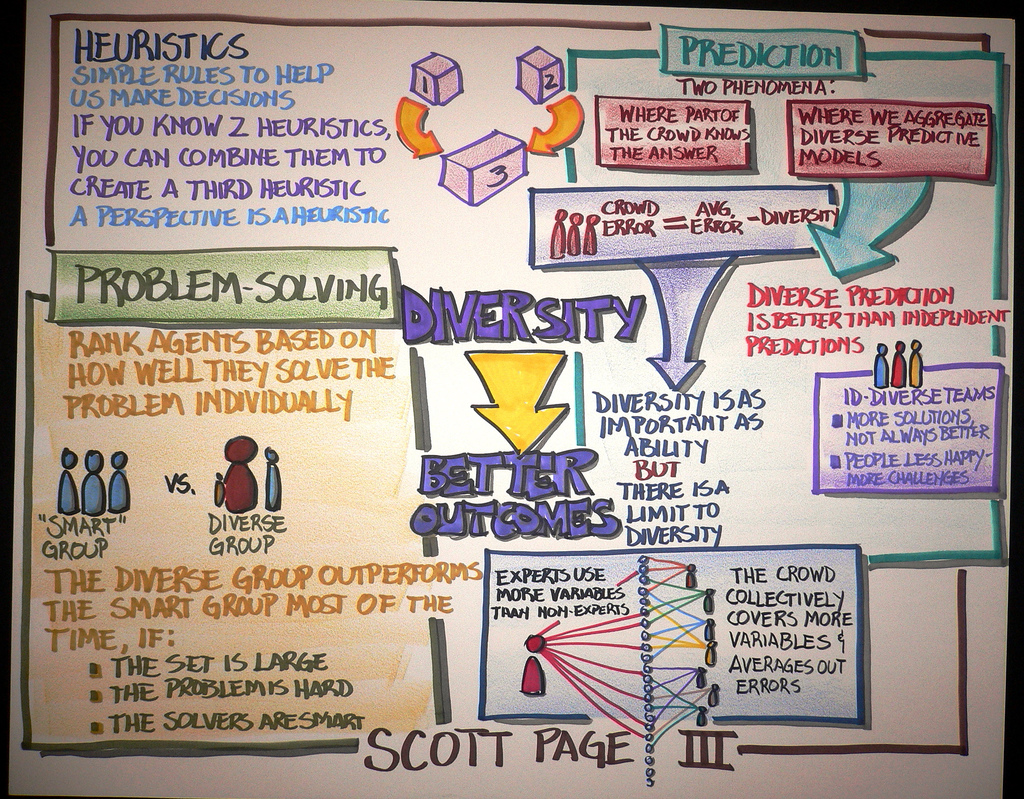 HEURISTICS
SIMPLE RULES TO HELP
US MAKE DECISIONS
IF YOU KNOW 2 HEURISTICS,
YOU CAN COMBINE THEM TO
CREATE A THIRD HEURISTIC
A PERSPECTIVE IS A HEURISTIC
1
2
3
PREDICTION
TWO PHENOMENA:
WHERE PART OF
THE CROWD KNOWS
THE ANSWER
WHERE WE AGGREGATE
DIVERSE PREDICTIVE
MODELS
CROWD ERROR = AVG. ERROR - DIVERSITY
DIVERSE PREDICTION
IS BETTER THAN INDEPENDENT
PREDICTIONS
ID-DIVERSE TEAMS
MORE SOLUTIONS,
NOT ALWAYS BETTER
PEOPLE LESS HAPPY-
MORE CHALLENGES
DIVERSITY IS AS
IMPORTANT AS
ABILITY
BUT
THERE IS A
LIMIT TO
DIVERSITY
DIVERSITY
BETTER
OUTCOMES
PROBLEM-SOLVING
RANK AGENTS BASED ON
HOW WELL THEY SOLVE THE
PROBLEM INDIVIDUALLY
VS.
"SMART"
GROUP
DIVERSE
GROUP
THE DIVERSE GROUP OUTPERFORMS
THE SMART GROUP MOST OF THE
TIME, IF:
THE SET IS LARGE
THE PROBLEM IS HARD
THE SOLVERS ARE SMART
EXPERTS USE
MORE VARIABLES
THAN NON-EXPERTS
THE CROWD
COLLECTIVELY
COVERS MORE
VARIABLES &
AVERAGES OUT
ERRORS
SCOTT PAGE III